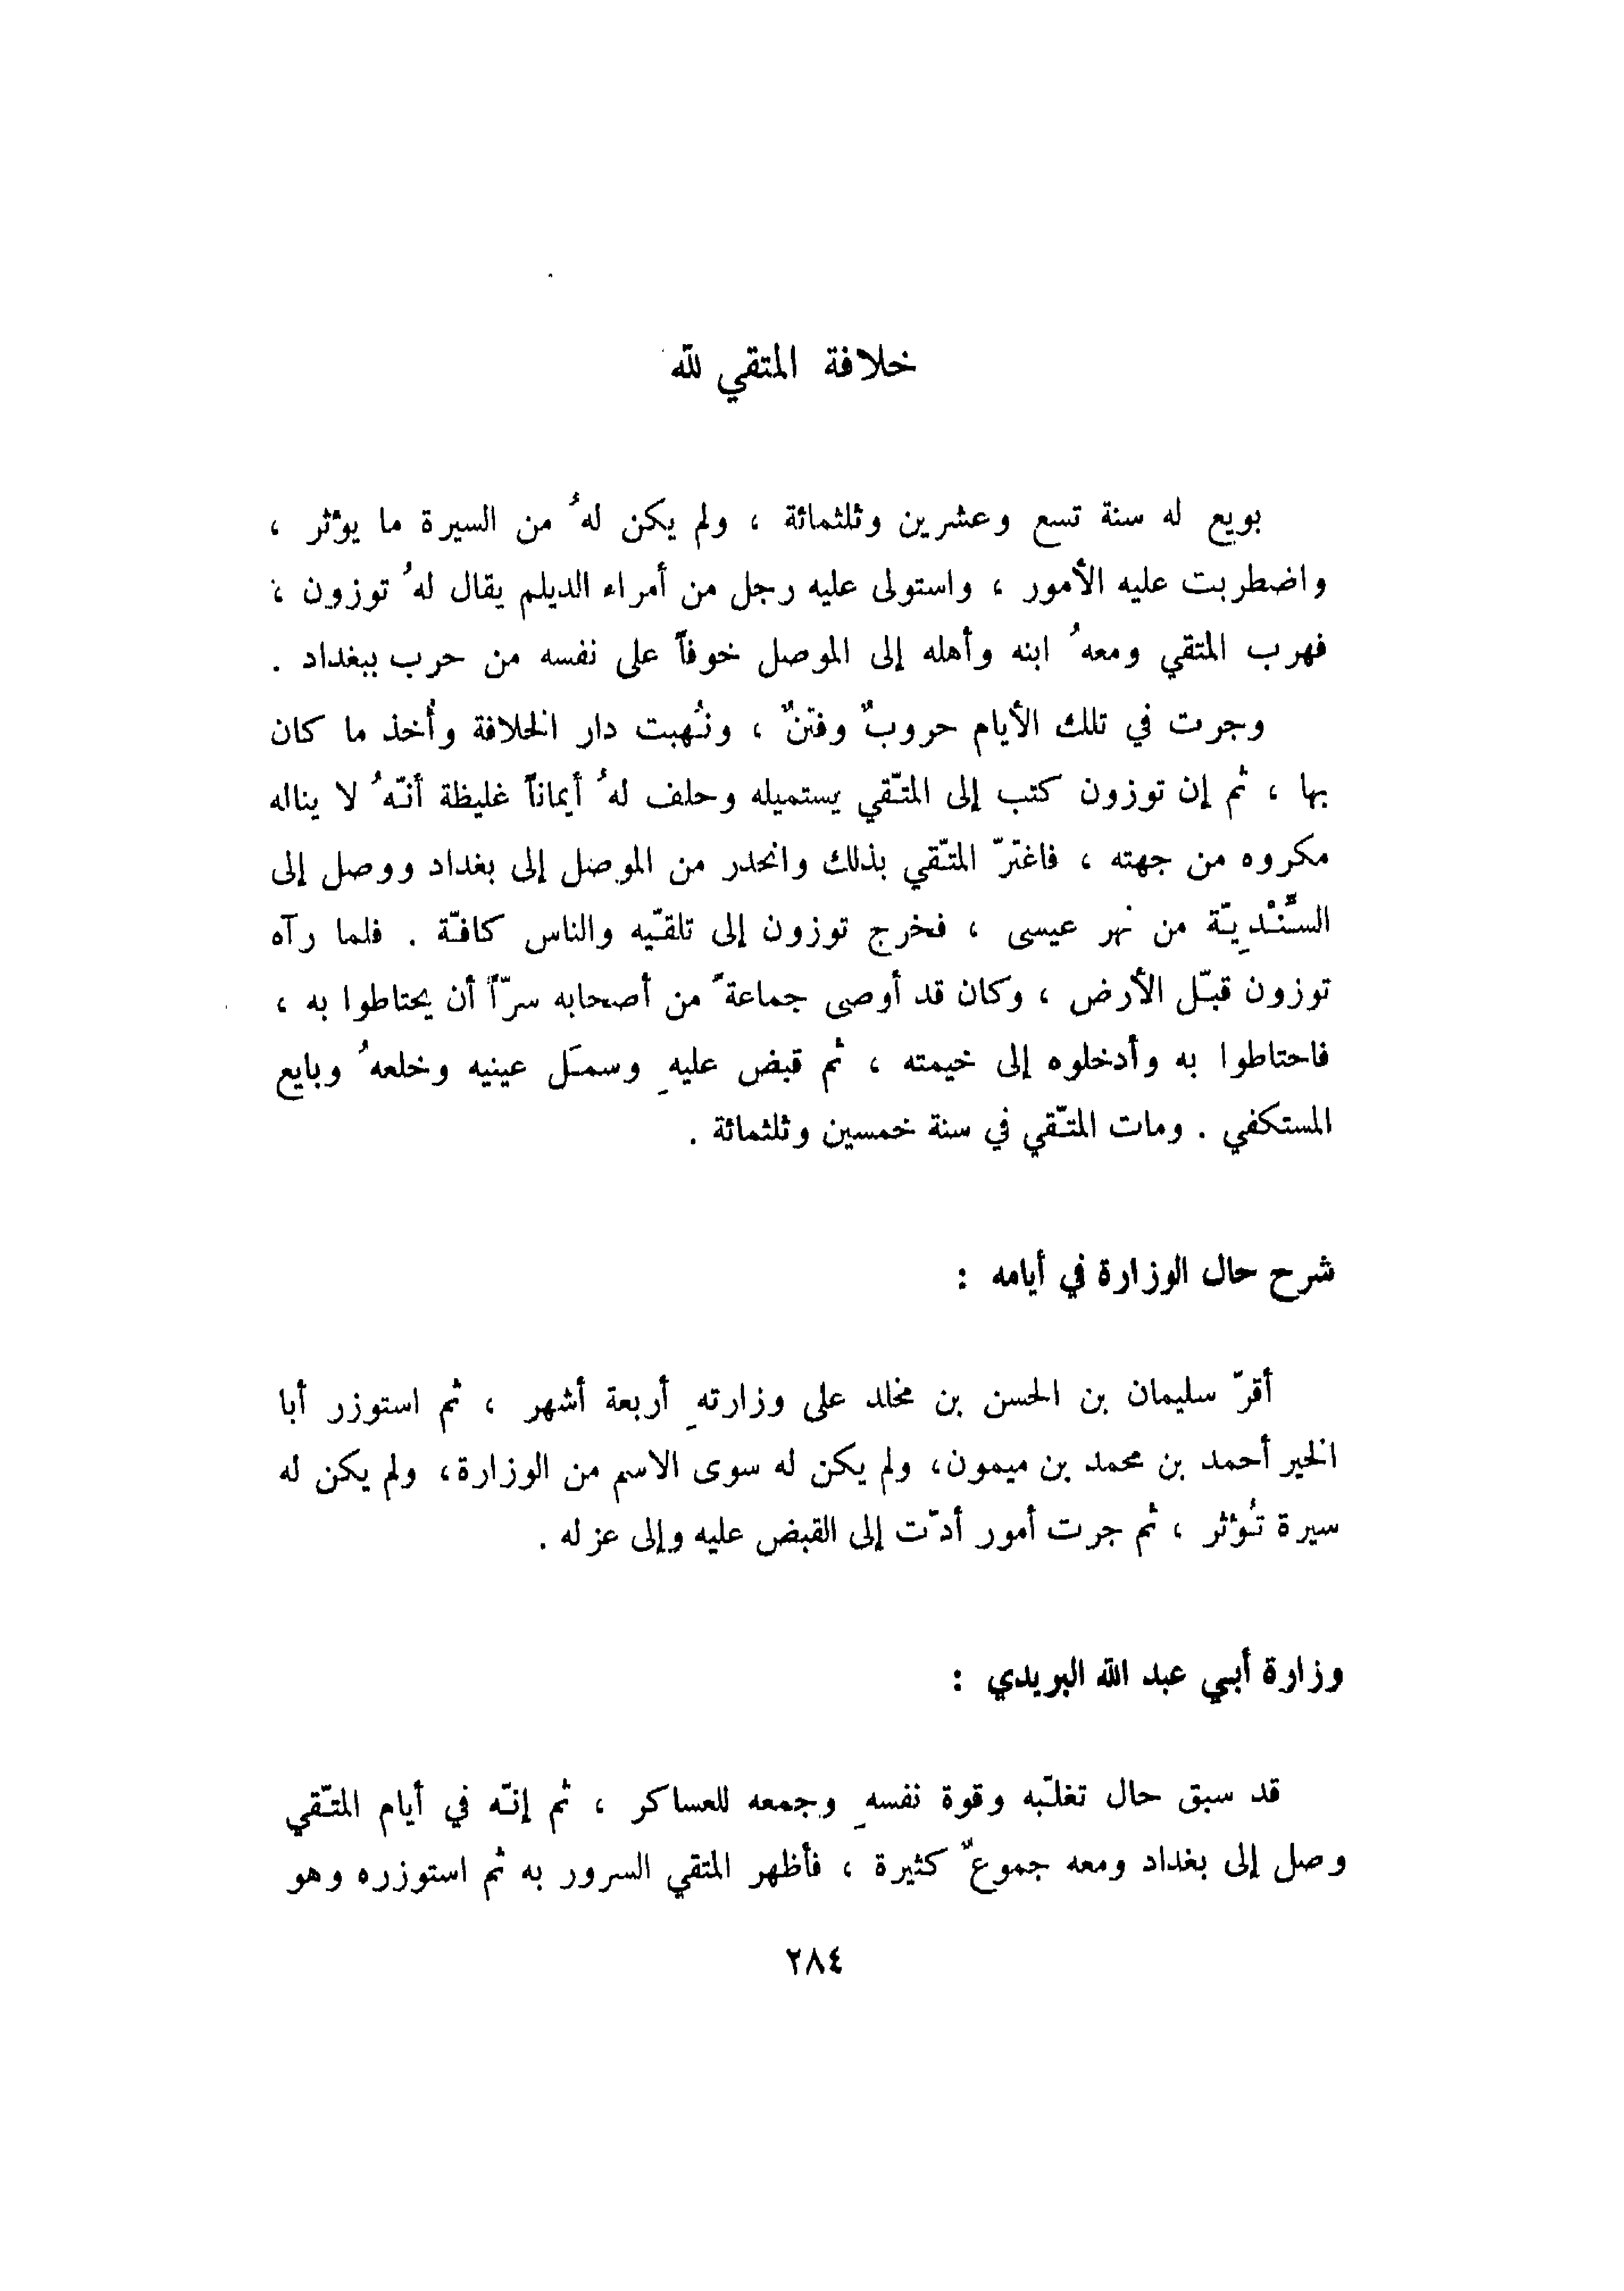 خلافة المتقي لله
بويع له سنة تسع وعشرين وثلثمائة ، ولم يكن لهُ من السيرة ما يؤثر ،
واضطربت عليه الأمور ، واستولى عليه رجل من أمراء الديلم يقال لهُ توزون ،
فهرب المتقي ومعهُ ابنه وأهله إلى الموصل خوفاً على نفسه من حرب ببغداد .
وجرت في تلك الأيام حروبٌ وفتنٌ ، ونُهبت دار الخلافة وأُخذ ما كان
بها ، ثم إن توزون كتب إلى المتّقي يستميله وحلف لهُ أيماناً غليظة أنّهُ لا يناله
مكروه من جهته ، فاغترّ المتّقي بذلك وانحدر من الموصل إلى بغداد ووصل إلى
السِّنْدِيّة من نهر عيسى ، فخرج توزون إلى تلقّيه والناس كافّة . فلما رآه
توزون قبّل الأرض ، وكان قد أوصى جماعةً من أصحابه سرّاً أن يحتاطوا به ،
فاحتاطوا به وأدخلوه إلى خيمته ، ثم قبض عليهِ وسمَل عينيه وخلعهُ وبايع
المستكفي . ومات المتّقي في سنة خمسين وثلثمائة .
شرح حال الوزارة في أيامه :
أقرّ سليمان بن الحسن بن مخلد على وزارتهِ أربعة أشهر ، ثم استوزر أبا
الخير أحمد بن محمد بن ميمون، ولم يكن له سوى الاسم من الوزارة، ولم يكن له
سيرة تُؤثر ، ثم جرت أمور أدّت إلى القبض عليه وإلى عزله .
وزارة أبي عبد الله البريدي :
قد سبق حال تغلّبه وقوة نفسهِ وجمعه للعساكر ، ثم إنّه في أيام المتّقي
وصل إلى بغداد ومعه جموعٌ كثيرة ، فأظهر المتقي السرور به ثم استوزره وهو
٢٨٤